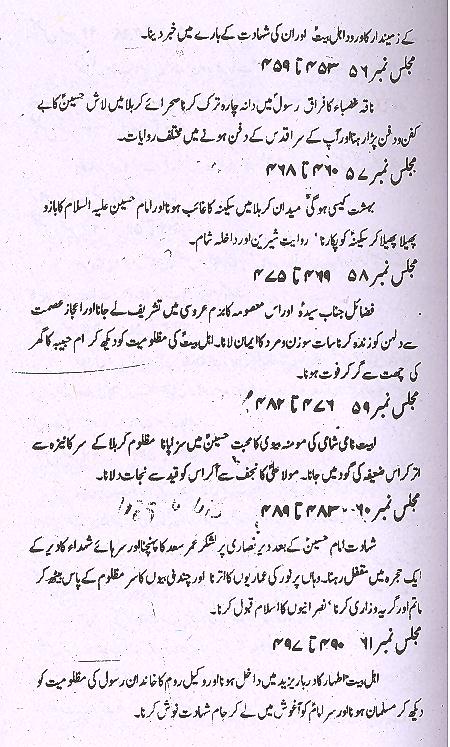 کے زمیندار کا ورود اہل بیتؑ اور ان کی شہادت کے بارے میں خبر دینا۔
مجلس نمبر ۵۶ ۴۵۳ تا ۴۵۹
ناقہ غضباء کا فراق رسولؐ میں دانہ چارہ ترک کرنا صحرائے کربلا میں لاش حسینؑ کا بے
کفن و دفن پڑا رہنا اور آپ کے سر اقدس کے دفن ہونے میں مختلف روایات۔
مجلس نمبر ۵۷ ۴۶۰ تا ۴۶۸
بہشت کیسی ہوگی میدان کربلا میں سکینہؑ کا غائب ہونا اور امام حسین علیہ السلام کا بازو
پھیلا پھیلا کر سکینہؑ کو پکارنا' روایت شیریں اور داخلہ شام۔
مجلس نمبر ۵۸ ۴۶۹ تا ۴۷۵
فضائل جناب سیدہؑ اور اس معصومہ کا بزم عروسی میں تشریف لے جانا اور اعجاز عصمت
سے دلہن کو زندہ کرنا سات سو زن و مرد کا ایمان لانا۔ اہل بیتؑ کی مظلومیت کو دیکھ کر ام حبیبہ کا گھر
کی چھت سے گر کر فوت ہونا۔
مجلس نمبر ۵۹ ۴۷۶ تا ۴۸۲
نامی شامی کی مومنہ بیوی کا محبت حسینؑ میں سزا پانا مظلوم کربلا کے سر کا نیزہ سے
اتر کر اس ضعیفہ کی گود میں جانا۔ مولا علیؑ کا نجف سے آ کر اس کو قید سے نجات دلانا۔
مجلس نمبر ۶۰ ۴۸۳ تا ۴۸۹
شہادت امام حسینؑ کے بعد دیر نصاریٰ پر لشکر عمر سعد کا پہنچنا اور سرہائے شہداء کا دیر کے
ایک حجرہ میں مقفل رہنا۔ وہاں پر نور کی عماریوں کا اترنا اور چند بی بیوں کا سر مظلوم کے پاس بیٹھ کر
ماتم اور گریہ و زاری کرنا' نصرانیوں کا اسلام قبول کرنا۔
مجلس نمبر ۶۱ ۴۹۰ تا ۴۹۷
اہل بیت اطہار کا دربار یزید میں داخل ہونا اور وکیل روم کا خاندان رسول کی مظلومیت کو
دیکھ کر مسلمان ہونا اور سر امامؑ کو آغوش میں لے کر جام شہادت نوش کرنا۔